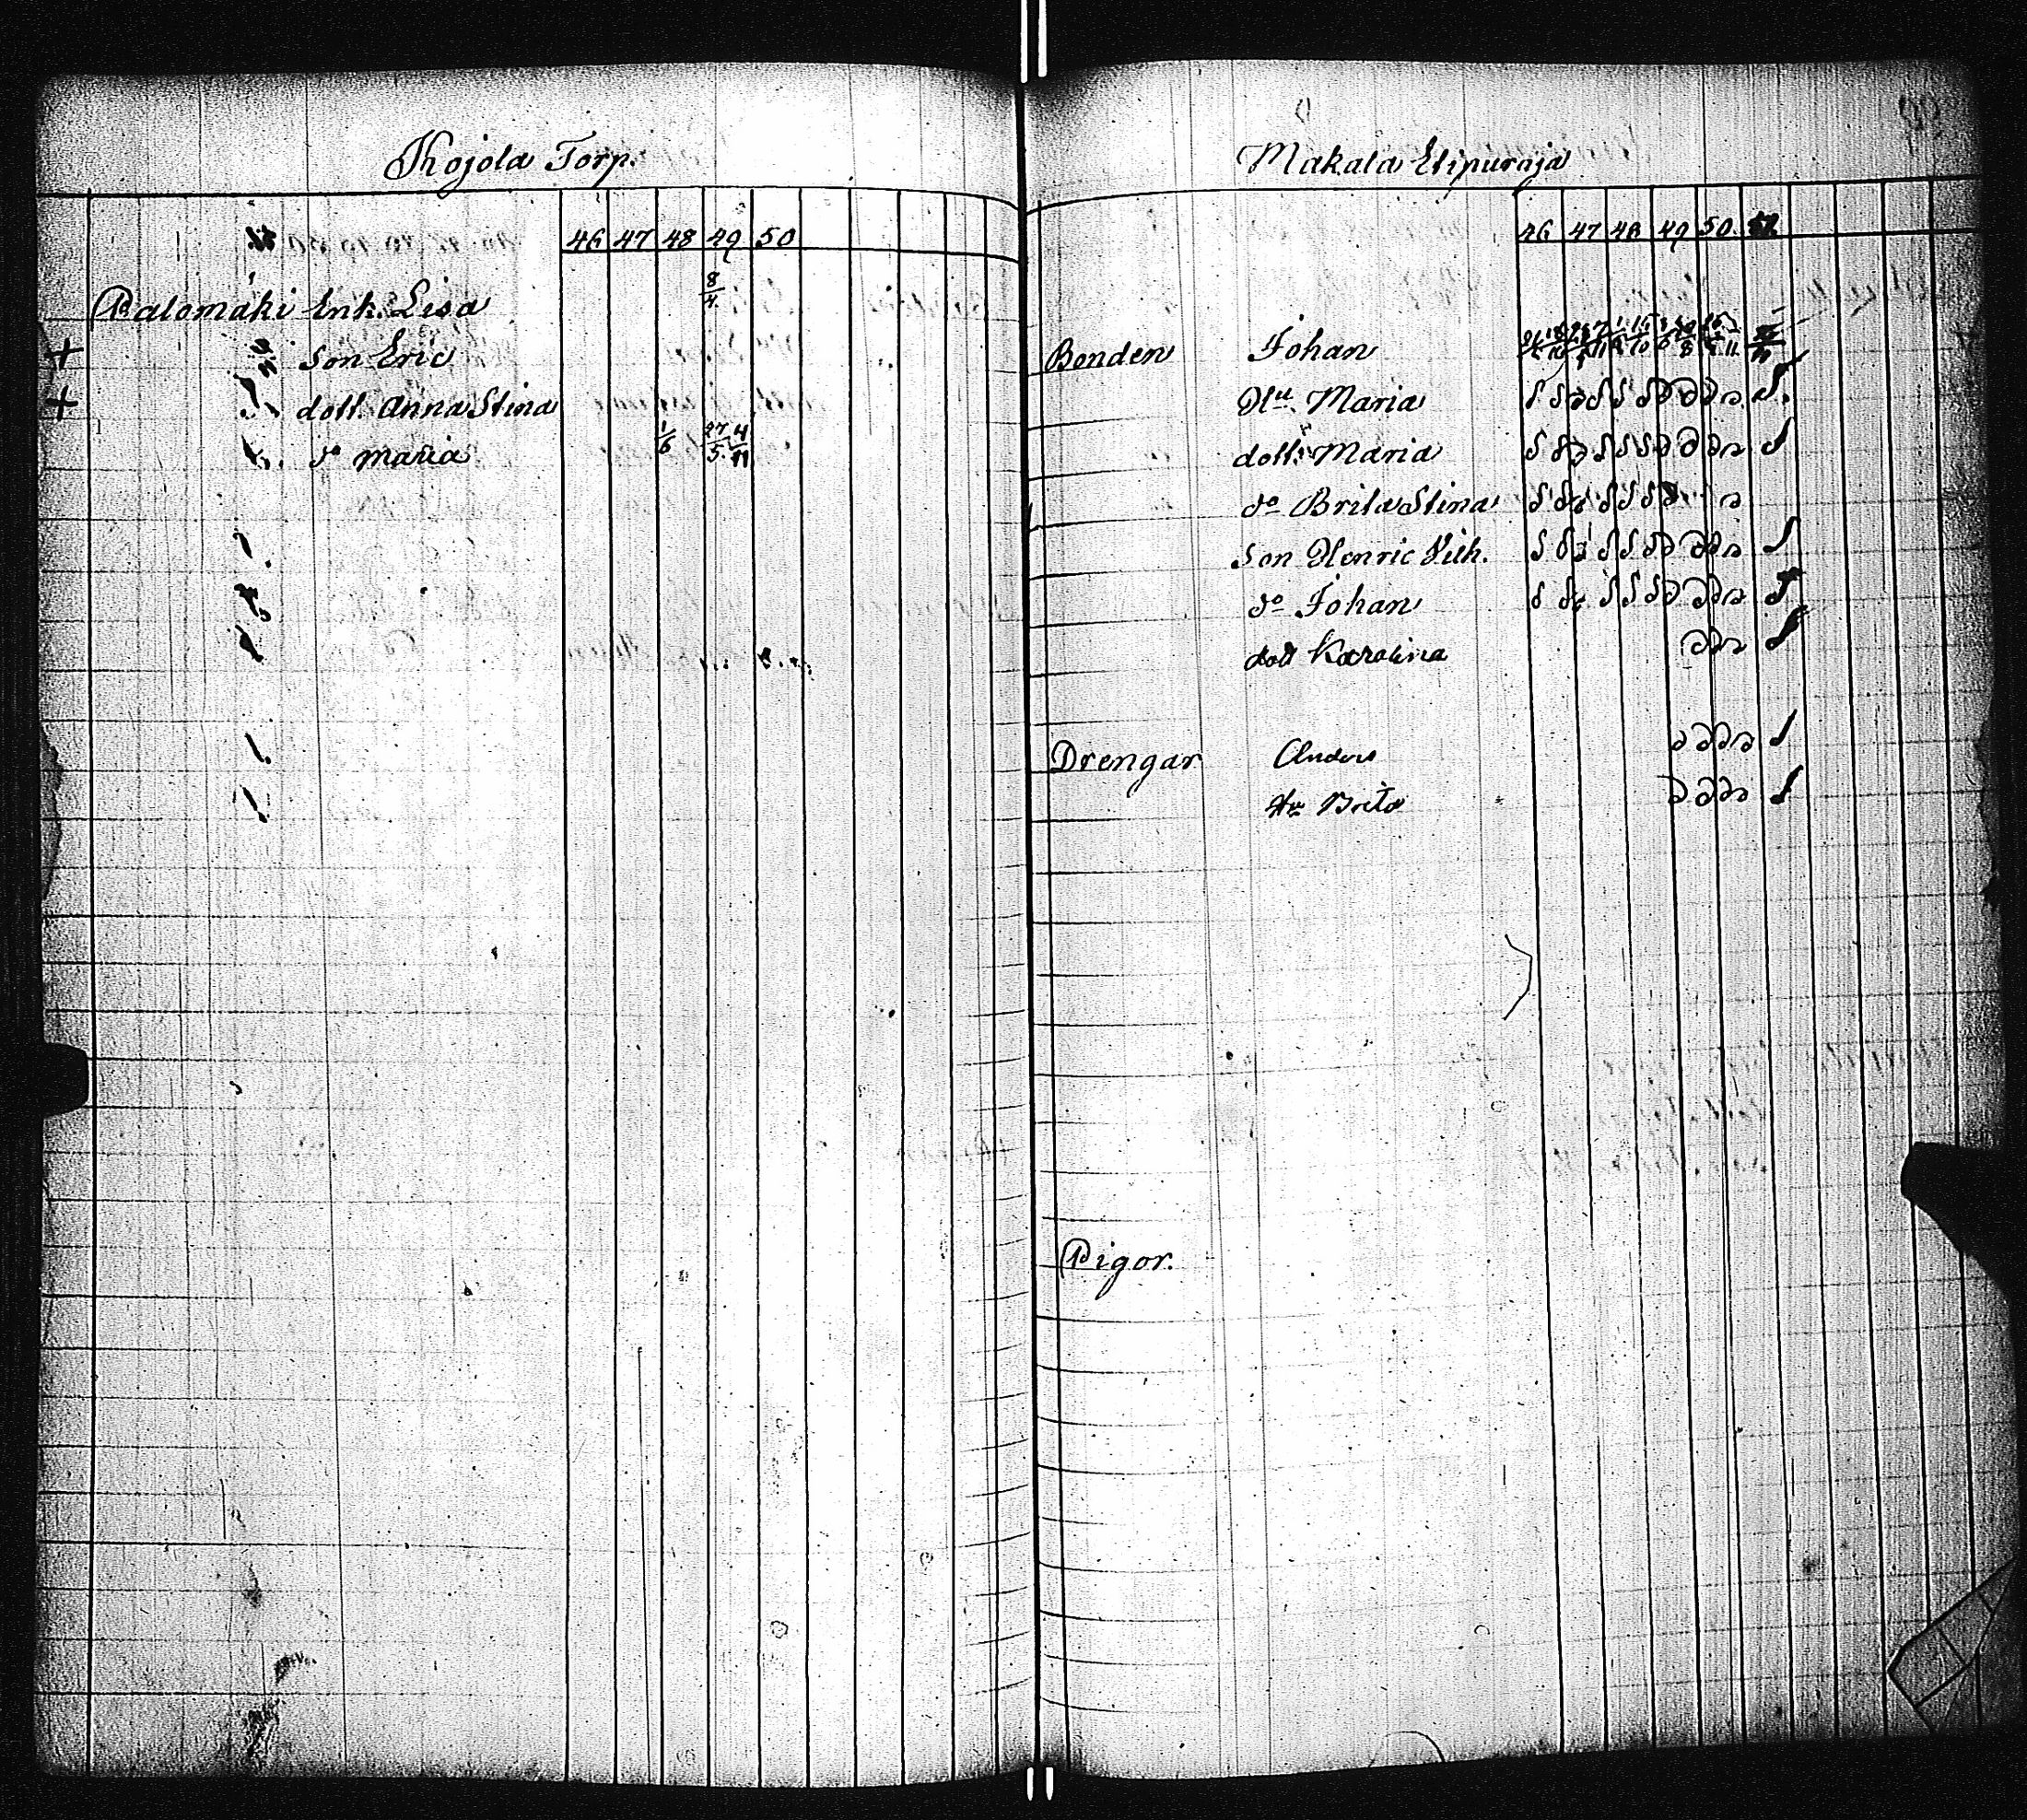 Kojola Torp.
46 47 48 49 50
8/4
Palomäki Enk. Lisa
+ Son Eric
+ dott. Anna Stina
do Maria 1/6 27/5 4/11
Makala Elipuraja
46 47 48 49 50
Bonden Johan
Hu. Maria
dott. Maria
do Brita Stina
Son Henric Vilh.
do Johan
dott Karolina
Drengar Anders
Hu Brita
Pigor.